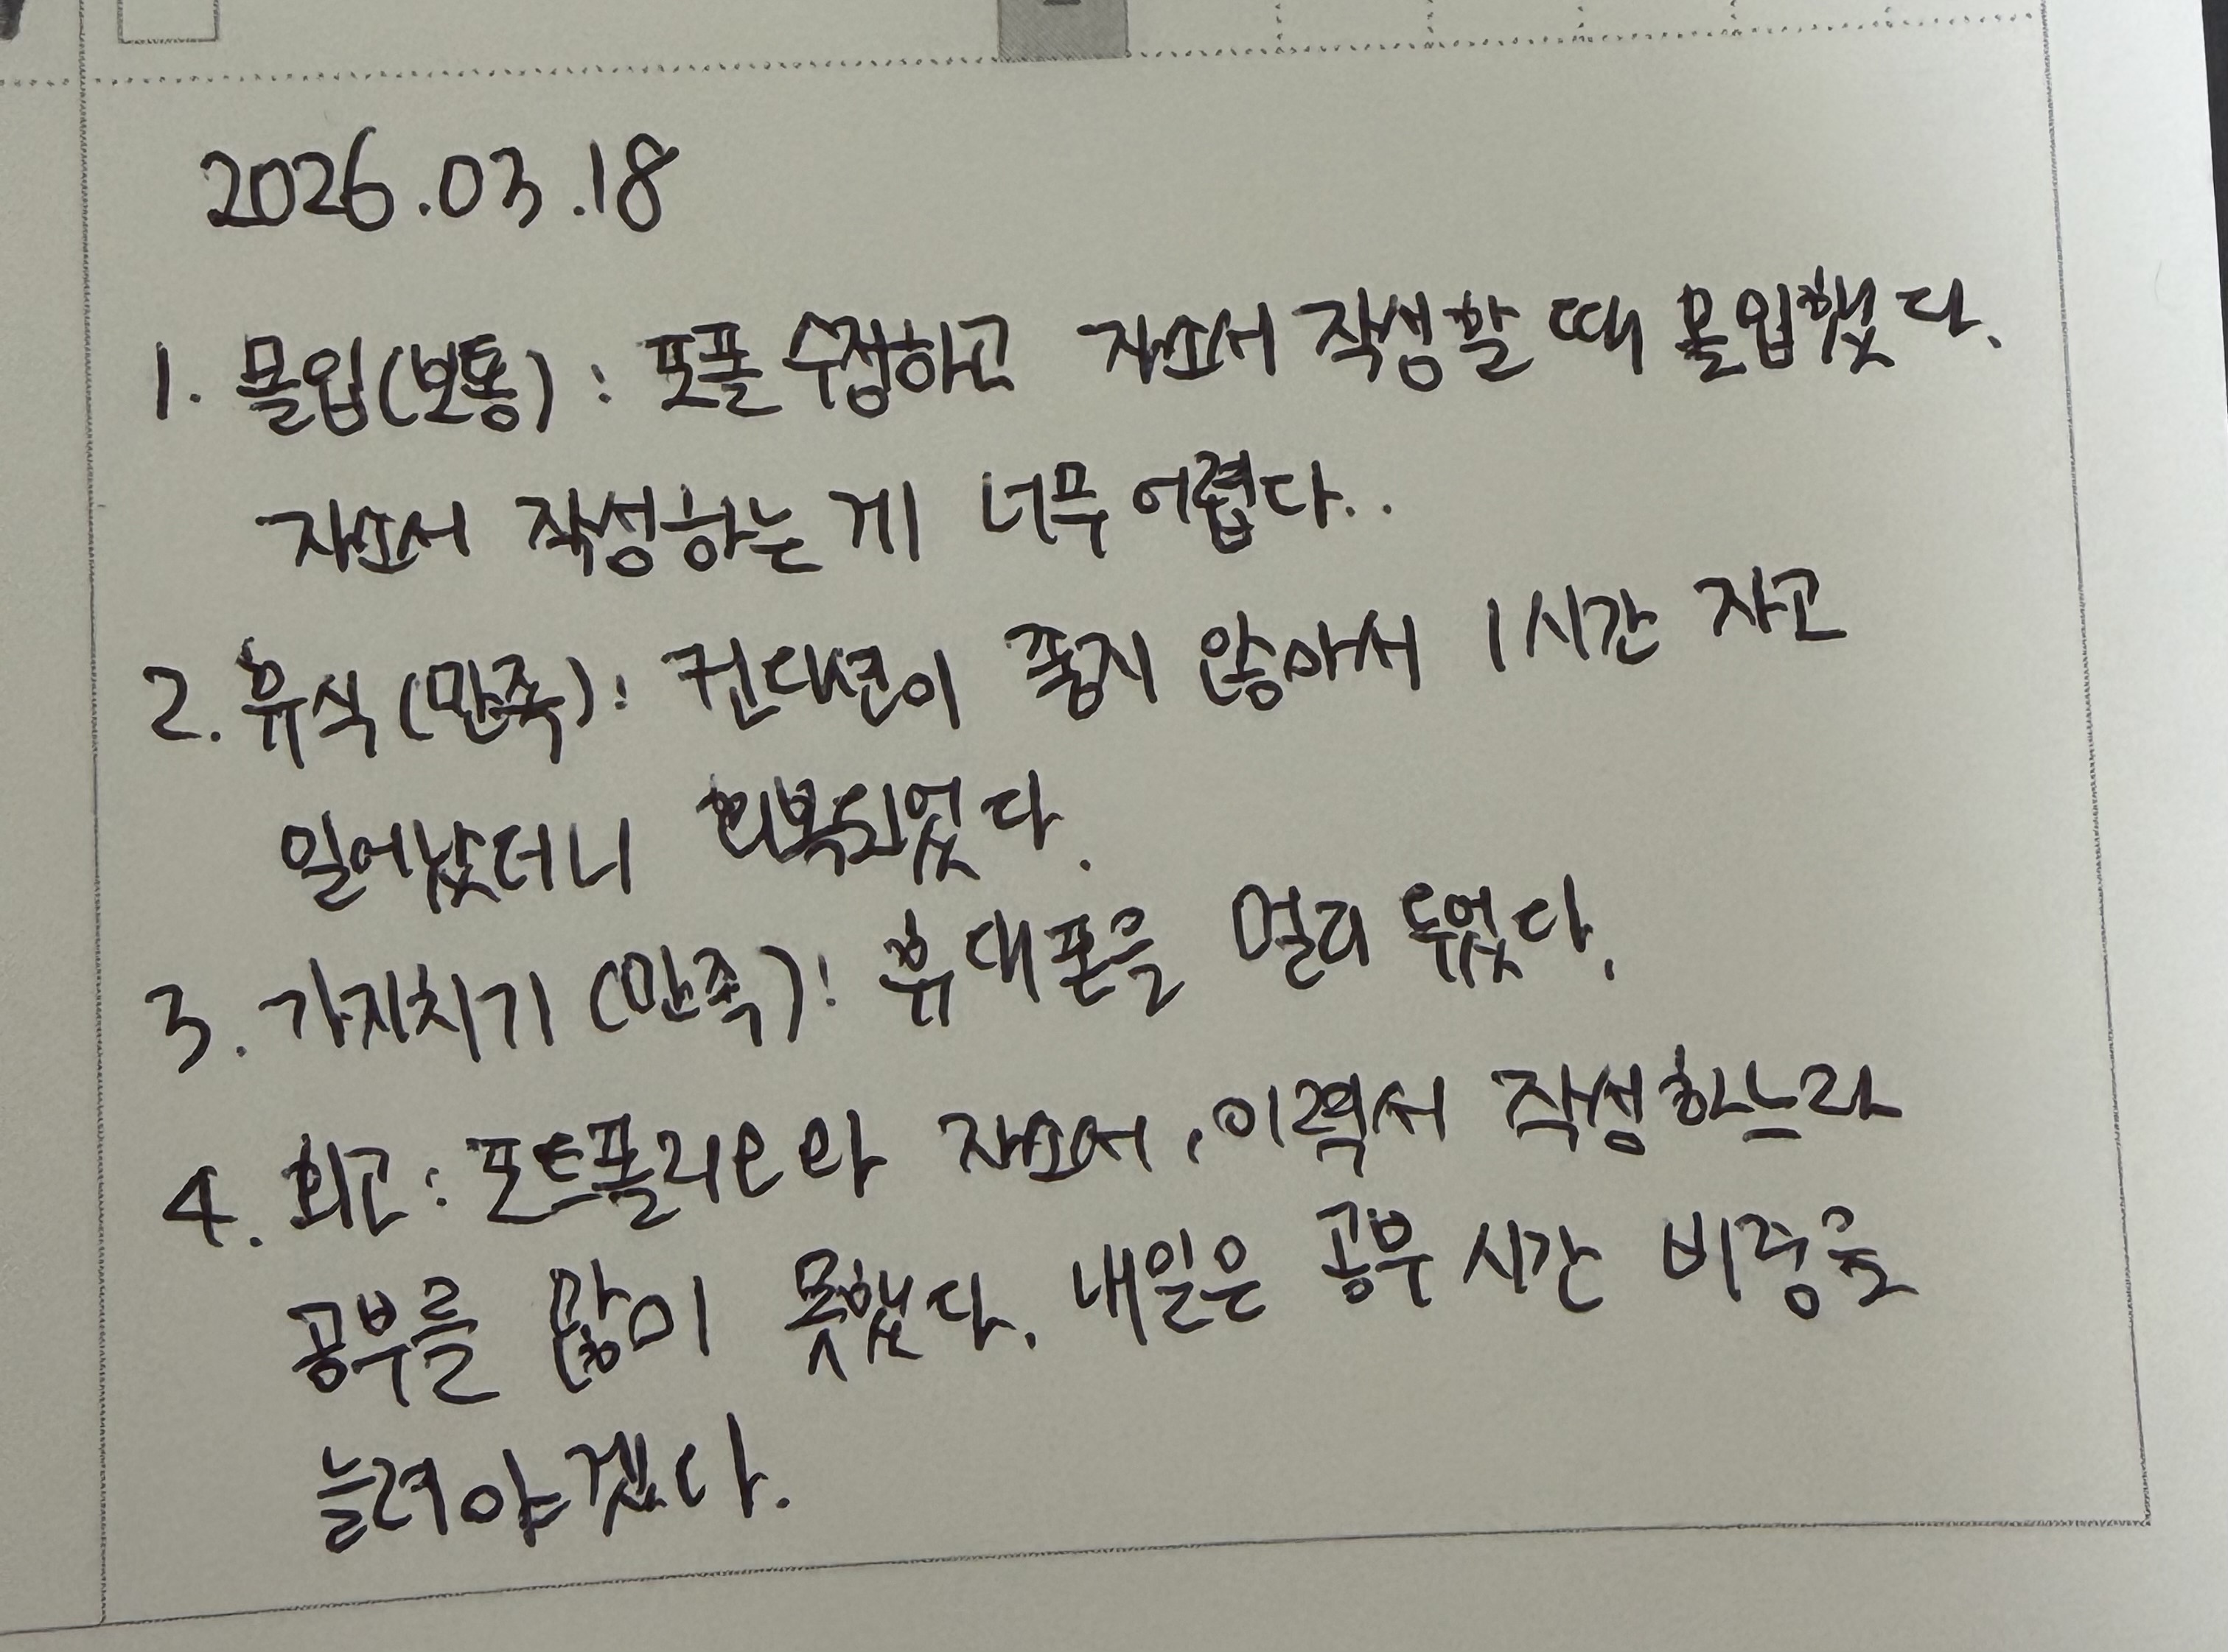 2026.03.18
1. 몰입(보통) : 포폴 수정하고 자소서 작성할 때 몰입했다.
자소서 작성하는 게 너무 어렵다..
2. 휴식(만족) : 컨디션이 좋지 않아서 1시간 자고
일어났더니 회복되었다.
3. 가지치기(만족) : 휴대폰을 멀리 두었다.
4. 회고 : 포트폴리오와 자소서, 이력서 작성하느라
공부를 많이 못했다. 내일은 공부 시간 비중을
늘려야겠다.